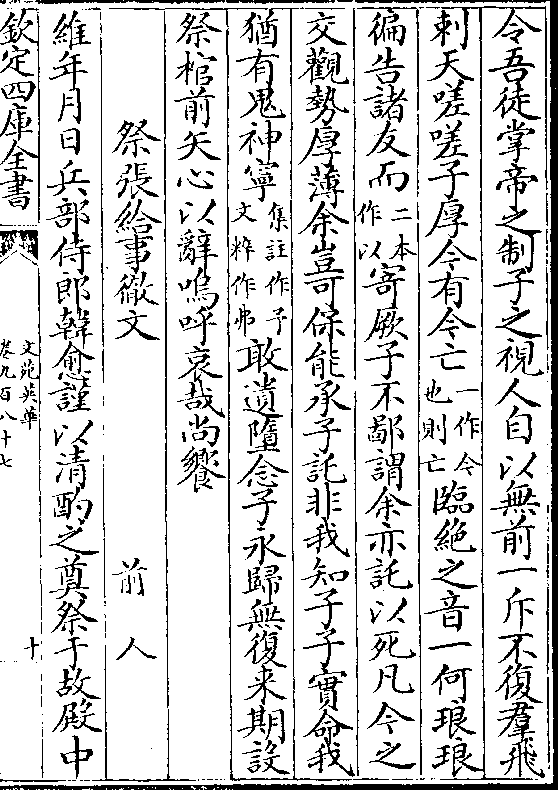 令吾徒掌帝之制子之視人自以無前一斥不復羣飛
刺天嗟嗟子厚今有今亡一作今也則亡臨絶之音一何琅琅
徧告諸友而二本作以寄厥子不鄙謂余亦託以死凡今之
交觀勢厚薄余豈可保能承子託非我知子子實命我
猶有鬼神寧集註作予文粹作弗敢遺墮念子永歸無復来期設
祭棺前矢心以辭嗚呼哀哉尚饗
祭張給事徹文　前人
維年月日兵部侍郎韓愈謹以清酌之奠祭于故殿中
欽定四庫全書
文苑英華
卷九百八十七
十